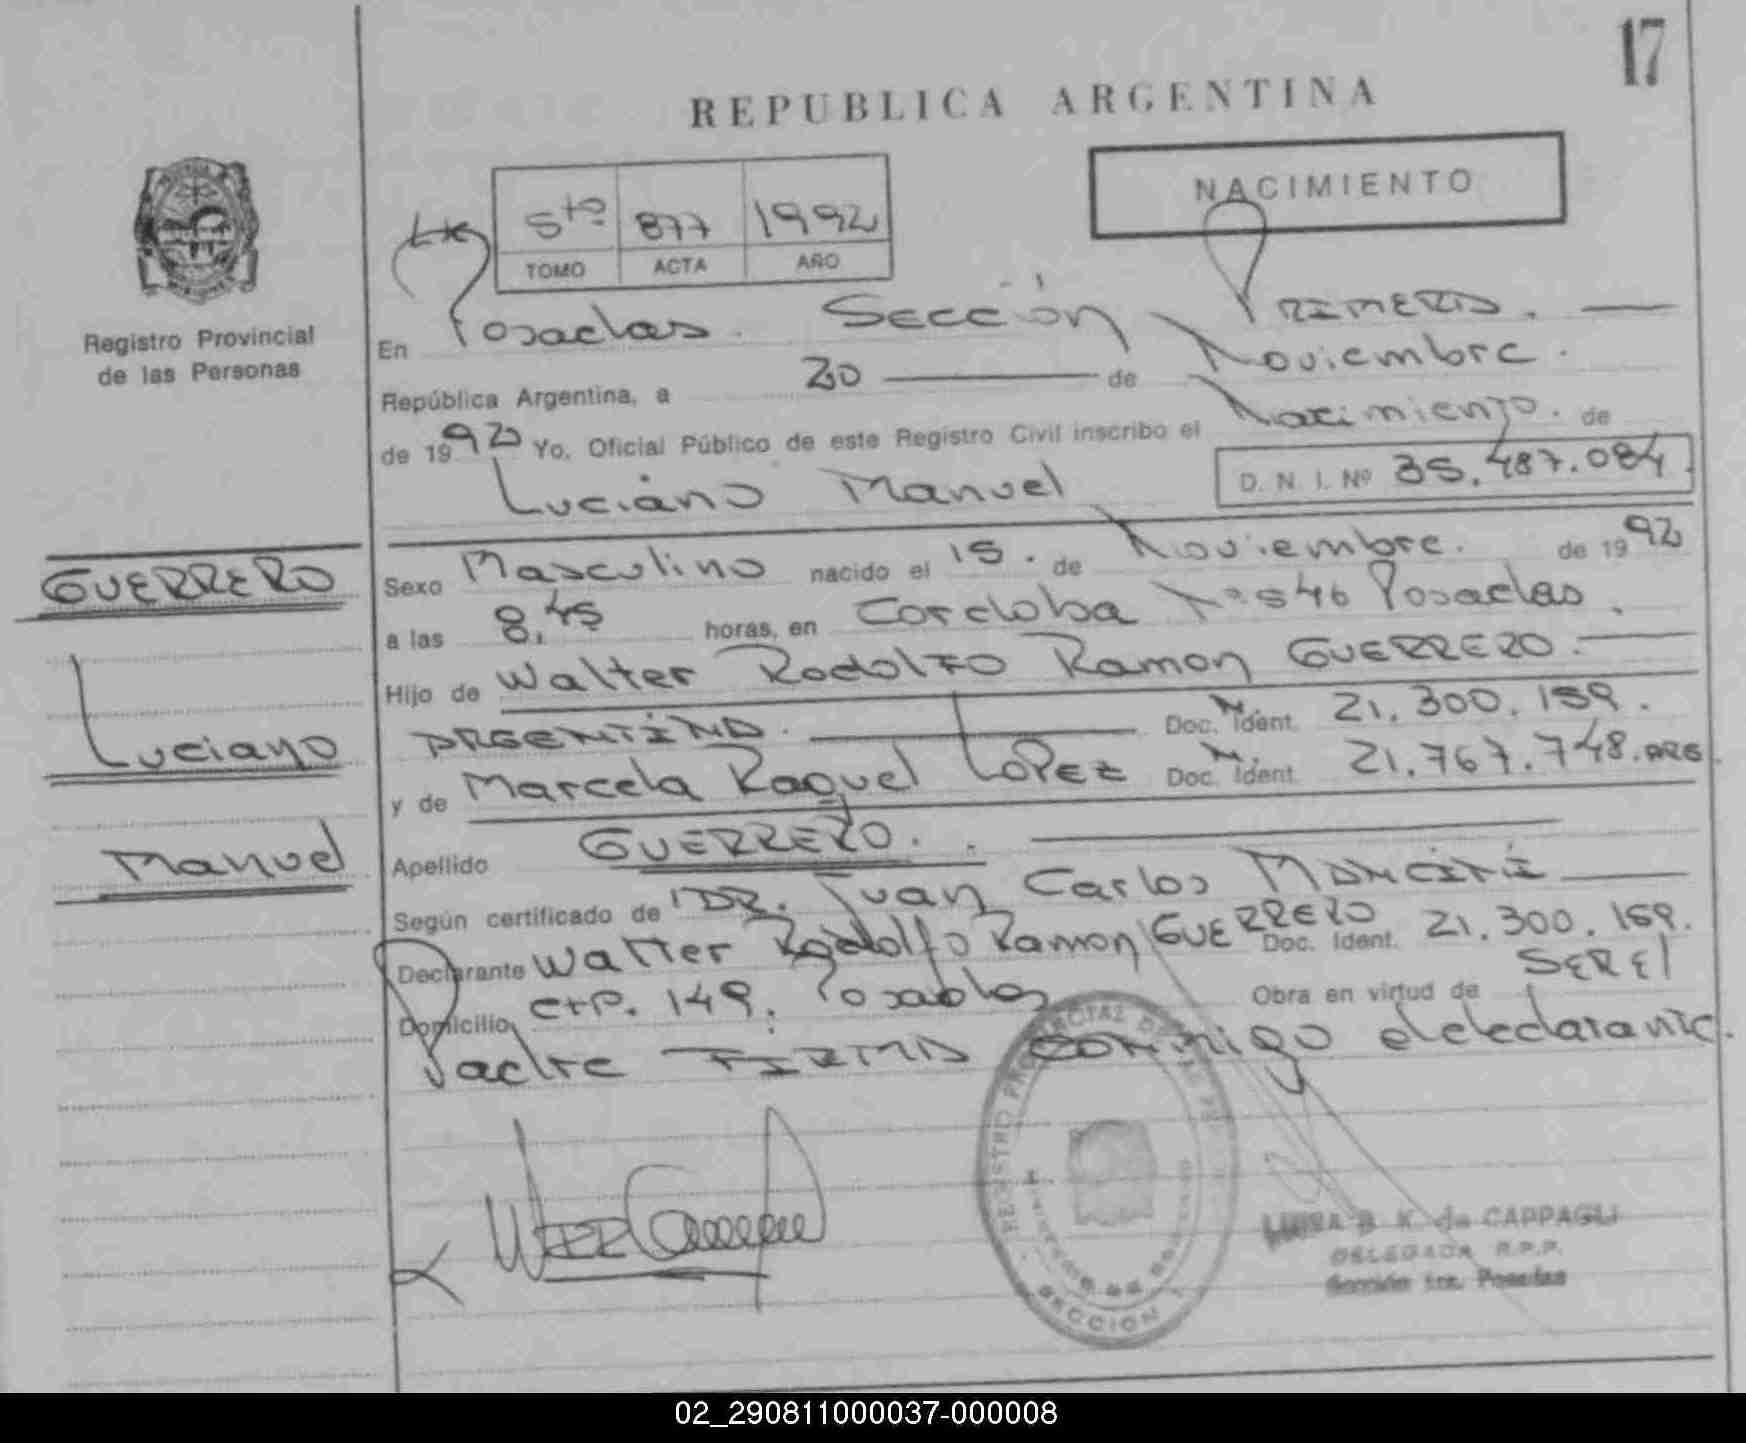 17
REPUBLICA ARGENTINA
NACIMIENTO
5to 877 1992
TOMO ACTA AÑO
Registro Provincial
de las Personas
En Posadas. Sección Primera.
República Argentina, a 20 de Noviembre.
de 1992 Yo, Oficial Público de este Registro Civil inscribo el Nacimiento. de
Luciano Manuel D. N. I. Nº 35.487.084
GUERRERO
Luciano
Manuel
Sexo Masculino nacido el 15. de Noviembre. de 1992
a las 8,45 horas, en Cordoba Nº 546 Posadas.
Hijo de Walter Rodolfo Ramon GUERRERO.
ARGENTINA. Doc. N. Ident. 21.300.159.
y de Marcela Raquel LOPEZ Doc. N. Ident. 21.767.748. ARG
Apellido GUERRERO.
Según certificado de DR. Juan Carlos MANCINI
Declarante Walter Rodolfo Ramon GUERRERO Doc. Ident. 21.300.159.
Domicilio 149. Posadas Obra en virtud de SER El
Padre FIRMA conmigo el declarante.
REGISTRO PROVINCIAL DE LAS PE
SECCION 1
B. K. de CAPPAGLI
DELEGADA R.P.P.
Sección 1ra. Posadas
02_290811000037-000008